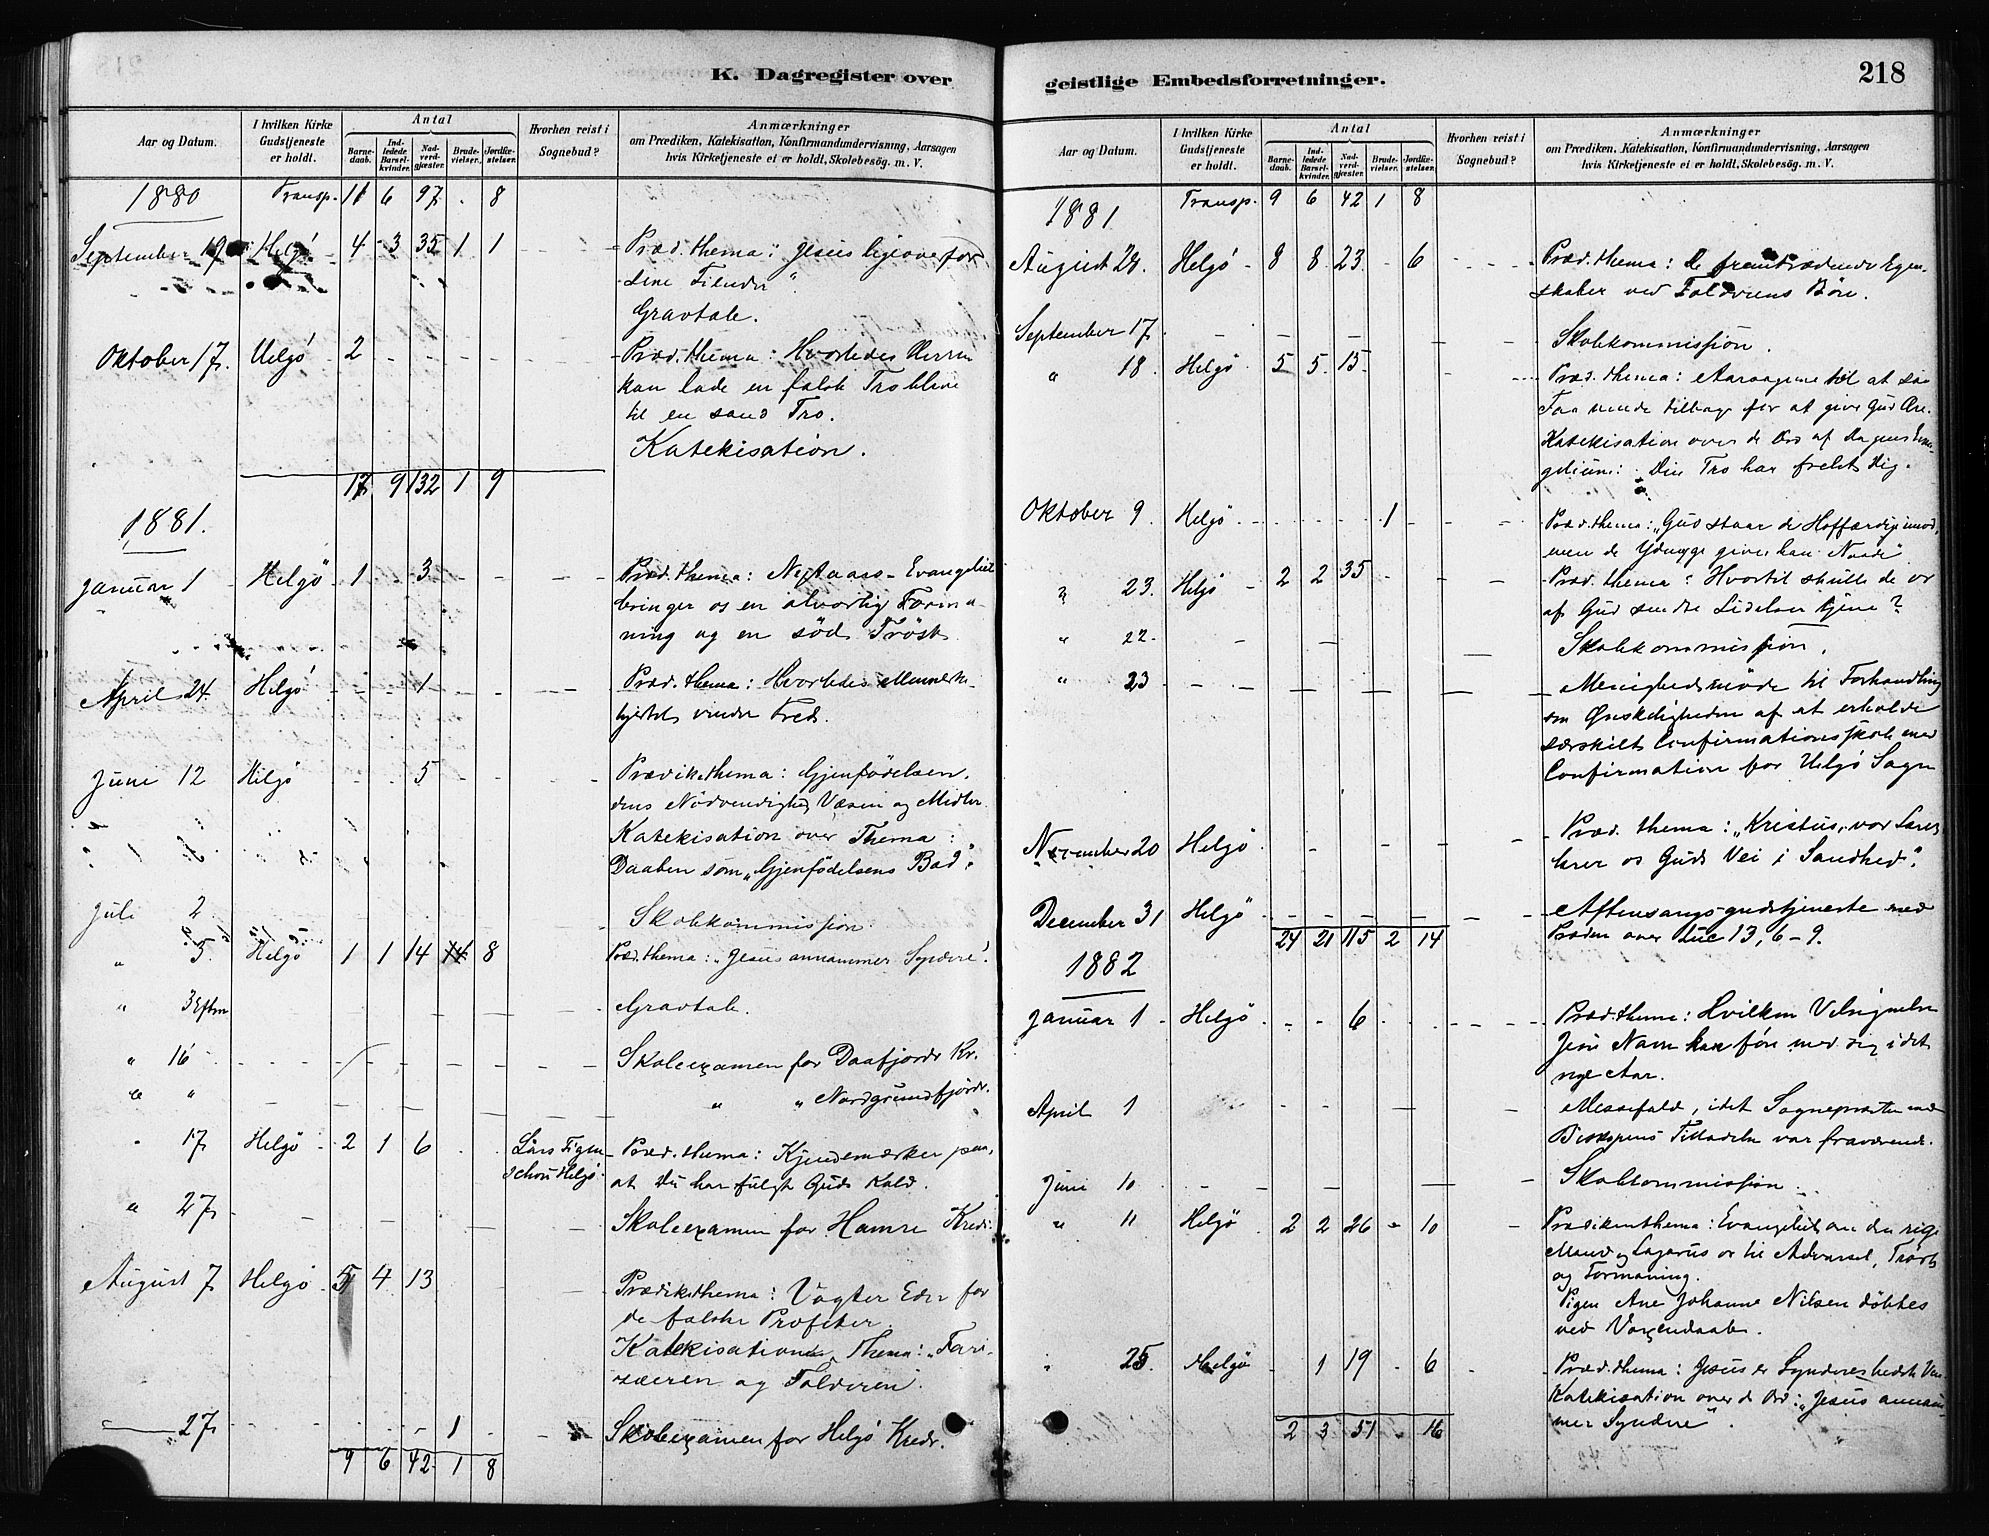 K. Dagregister over
Aar og Datum.
I hvilken Kirke Gudstjeneste er holdt.
Antal
Barnedaab.
Indledede Barselkvinder.
Nadverdgjæster.
Brudevielser.
Jordfæstelser.
Hvorhen reist i Sognebud?
Anmærkninger
om Prædiken, Katekisation, Konfirmandundervisning, Aarsagen
hvis Kirketjeneste ei er holdt, Skolebesøg. m. V.
1880 Transp. 11 6 97 . 8
September 19 Helgö 4 3 35 1 1 Præd. thema: "Jesus ligeoverfor
sine Fiender".
Gravtale.
Oktober 17. Helgö 2 Præd. thema: Hvorledes Herren
kan lade en falsk Tro blive
til en sand Tro.
Katekisation.
17 9 132 1 9
1881.
Januar 1 Helgö 1 3 Præd. thema: Nytaars-Evangeliet
bringer os en alvorlig Forma-
ning og en söd Tröst.
April 24. Helgö 1 Præd. thema: Hvorledes Menneske-
hjertet vinder Fred.
June 12 Helgö 5 Prædikethema: Gjenfödelsen,
dens Nödvendighed, Væsen og Midler.
Katekisation over Thema:
Daaben som "Gjenfödelsens Bad".
Juli 2 Skolekommission.
" 3. Helgö 1 1 14 8 Præd. thema: "Jesus annammer Syndere".
" 3 Eftm Gravtale.
" 16 Skoleexamen for Daafjords Kr.
" " " " Nordgrundfjords.
" 17 Helgö 2 1 6 Præd. thema: Kjendemærker paa,
at Du har fulgt Guds Kald.
" 27 Skoleexamen for Hamre Kreds.
August 7 Helgö 5 4 13 Prædikethema: Vogter Eder for
de falske Profeter.
Katekisation Thema: "Fari-
sæeren og Tolderen.
27 1 Skoleexamen for Helgö Kreds.
9 6 42 1 8
geistlige Embedsforretninger.
218
Aar og Datum.
I hvilken Kirke Gudstjeneste er holdt.
Antal
Barnedaab.
Indledede Barselkvinder.
Nadverdgjæster.
Brudevielser.
Jordfæstelser.
Hvorhen reist i Sognebud?
Anmærkninger
om Prædiken, Katekisation, Konfirmandundervisning, Aarsagen
hvis Kirketjeneste ei er holdt, Skolebesög. m. V.
1881. Transp. 9 6 42 1 8
August 28. Helgö 8 8 23 6 Præd. thema: De fremtrædende Egen-
skaber ved Tolderens Bön.
September 17. Skolekommission.
" 18. Helgö 5 5 15 Præd. thema: Aarsagerne til at saa
Faa vende tilbage for at give Gud Ære.
Katekisation over de Ord af Dagens Evan-
gelium: Din Tro har frelst dig.
Oktober 9. Helgö 1 Præd. thema: "Gud staar de Hoffærdige imod,
men de Ydmyge giver han Naade"
" 23. Helgö 2 2 35 Præd. thema: Hvortil skulle de os
af Gud sendte Lidelser tjene?
" 22. Skolekommission.
" 23 Menighedsmöde til Forhandling
om Önskeligheden af at erholde
særskilt Confirmationsskole med
Confirmation for Helgö Sogn
November 20 Helgö Præd. thema: "Kristus, vor Lærer
lærer os Guds Vei i Sandhed".
December 31 Helgö Aftensangsgudstjeneste med
Præden over Luc 13, 6-9.
24 21 115 2 14
1882
Januar 1 Helgö 6 Præd. thema: Hvilken Velsignelse
Jesu Navn kan före med sig i det
nye Aar.
April 1 Messefald, idet Sognepræsten med
Biskopens Tilladelse var fraværende.
Juni 10 Skolecommission.
" 11 Helgö 2 2 26 10 Prædikenthema: Evangeliet om den rige
Mand og Lazarus er til Advarsel, Tröst
og Formaning.
Pigen Ane Johanne Nilsen döbtes
ved Voxendaab.
" 25. Helgö 1 19 6 Præd. thema: Jesus er Synderes bedste Ven
Katekisation over d. Ord: "Jesus annam-
mer Syndere".
2 3 51 16